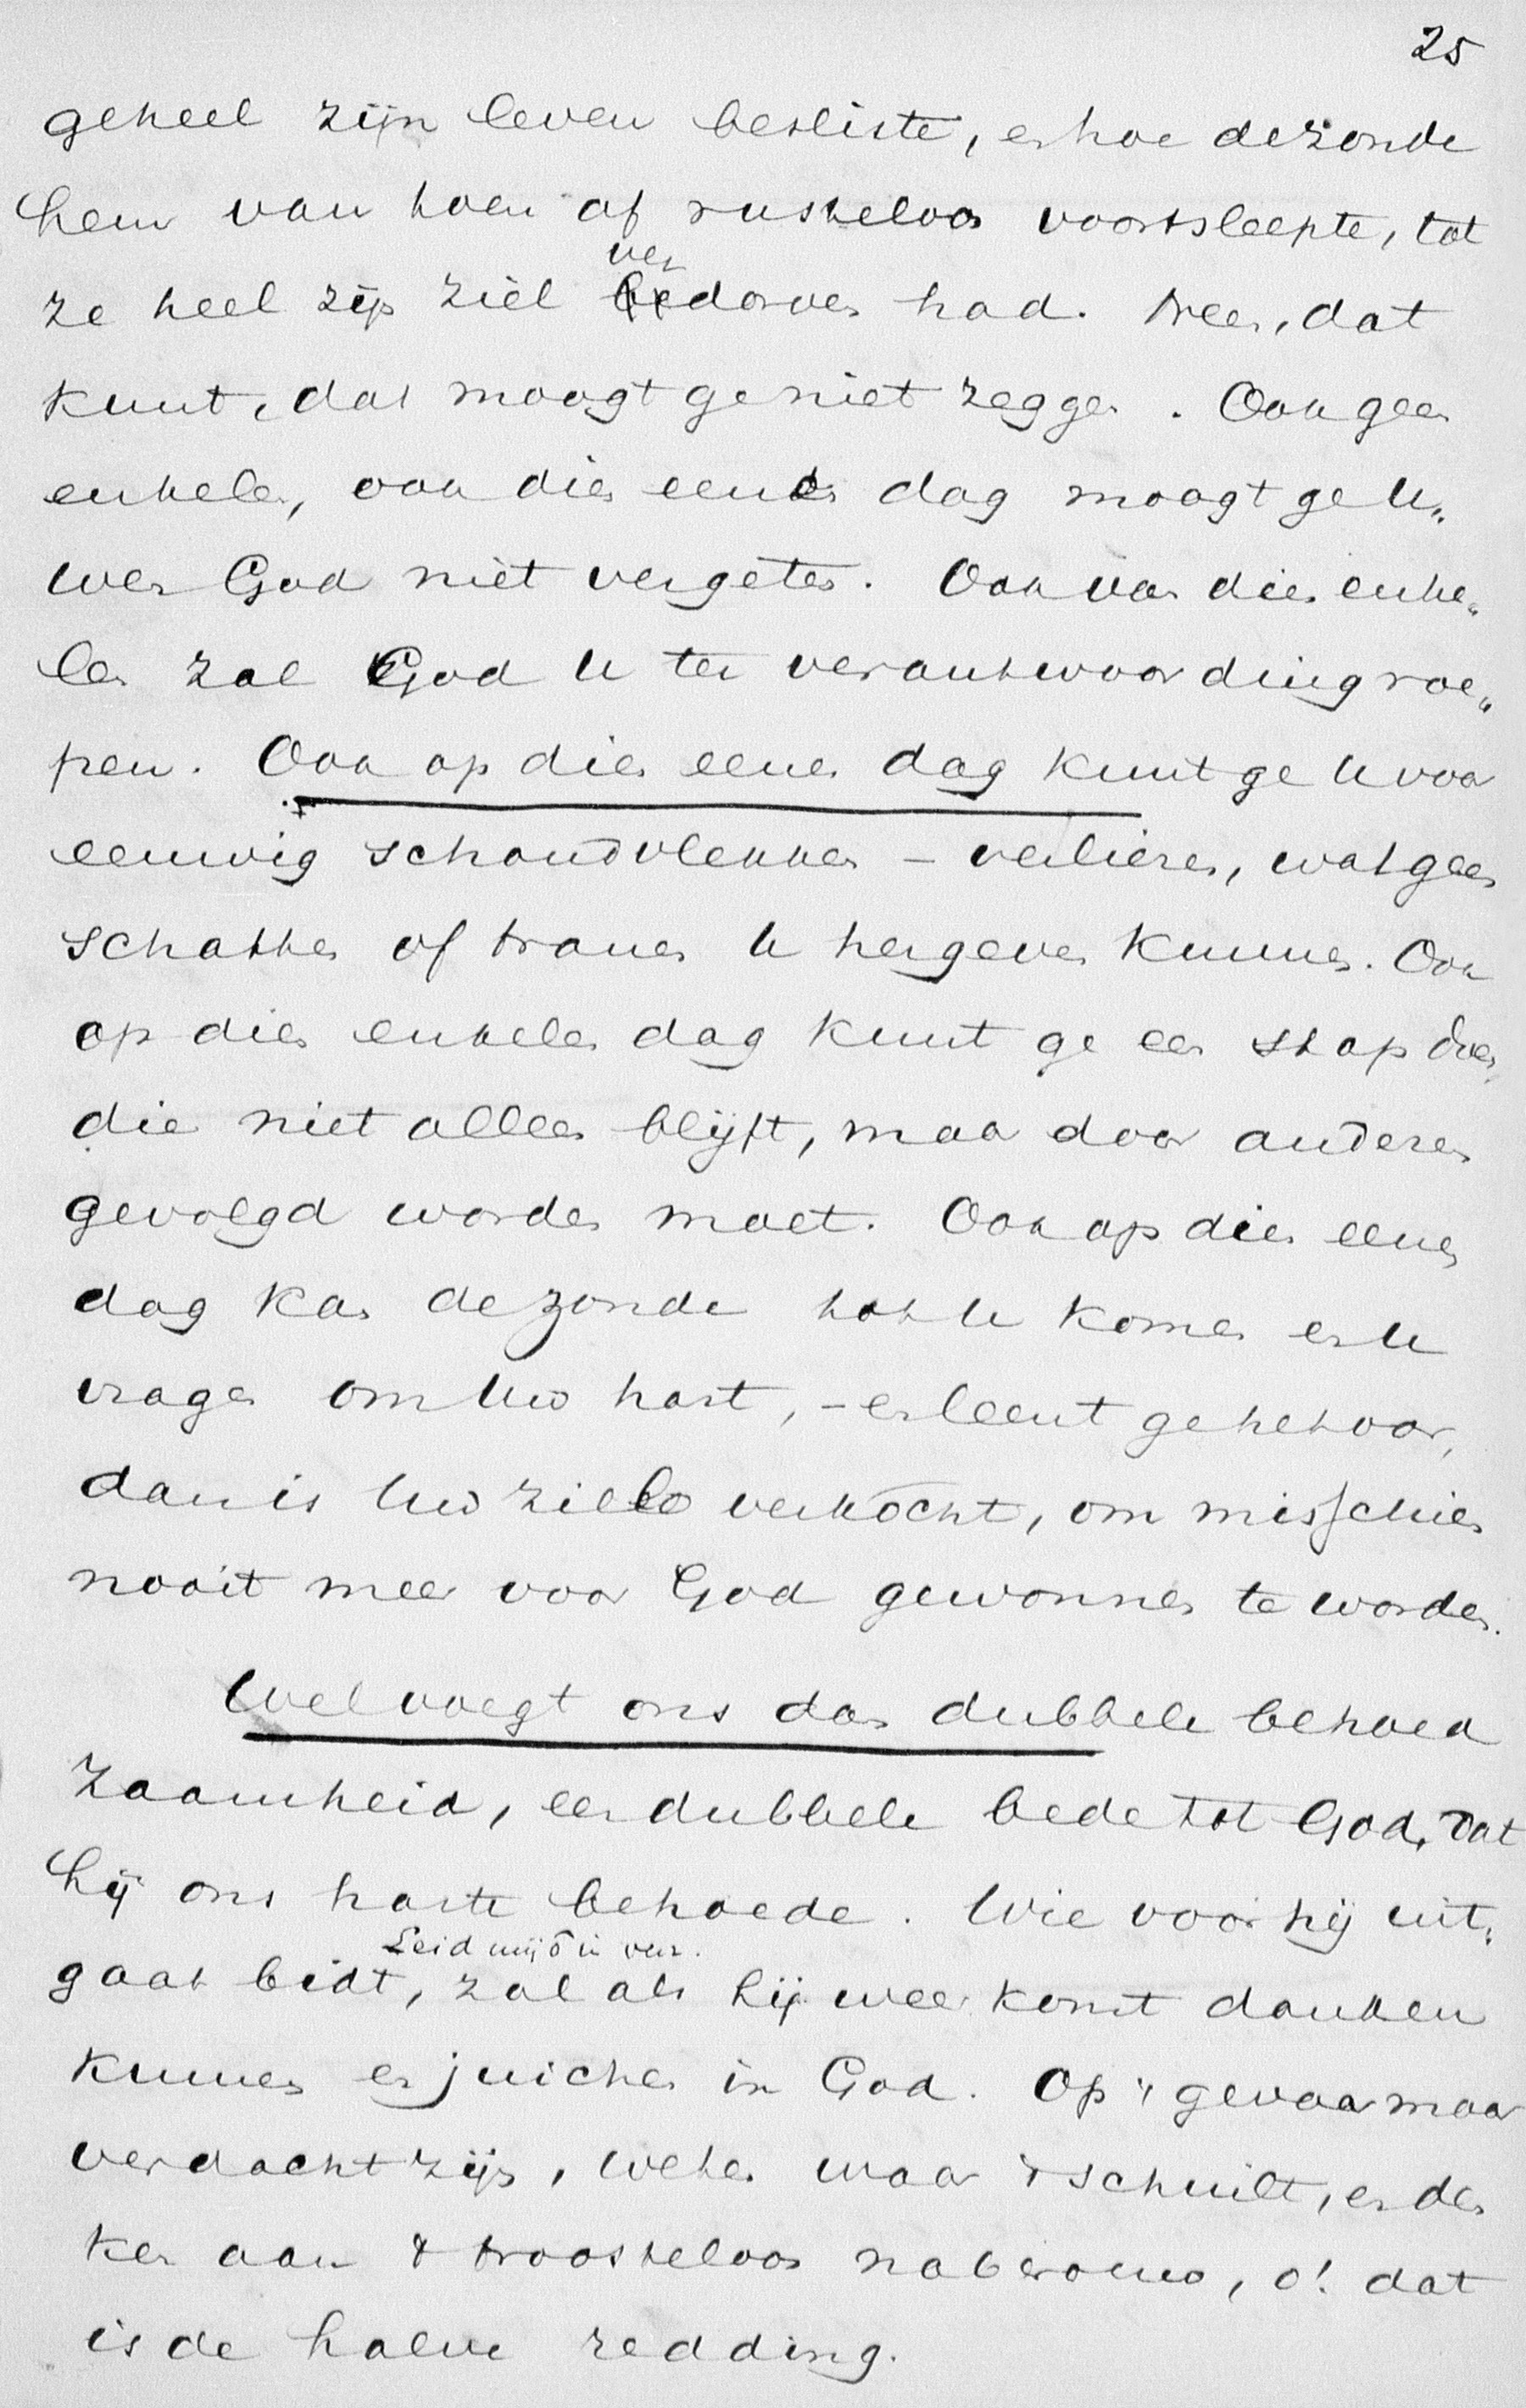 25
geheel zijn leven besliste, en hoe de zonde
hem van toen af rusteloos voortsleepte, tot
ver
ze heel zijn ziel bedorven had. Neen, dat
kunt, dat moogt ge niet zeggen. Ook geen
enkelen, ook dien eenen dag moogt ge U„
wen God niet vergeten. Ook van dien enke„
len zal God U ter verantwoording roe„
pen. Ook op dien eenen dag kunt ge U voor
eeuwig schandvlekken – verliezen, wat geen
schatten of tranen U hergeven kunnen. Ook
op dien enkelen dag kunt ge een stap doen,
die niet alleen blijft, maar door anderen
gevolgd worden moet. Ook op dien eenen
dag kan de zonde tot U komen en U
vragen om Uw hart, – en leent ge het oor,
dan is Uw ziele verkocht, om misschien
nooit meer voor God gewonnen te worden.
Wel voegt ons dan dubbele behoed
zaamheid, een dubbele bede tot God, dat
hij ons harte behoede. Wie voor hij uit„
Leid mij ō in verz.
gaat bidt, zal als hij weer komt danken
kunnen en juichen in God. Op 't gevaar maar
verdacht zijn, weten waar 't schuilt, en den
ken aan 't troosteloos naberouw, o! dat
is de halve redding.